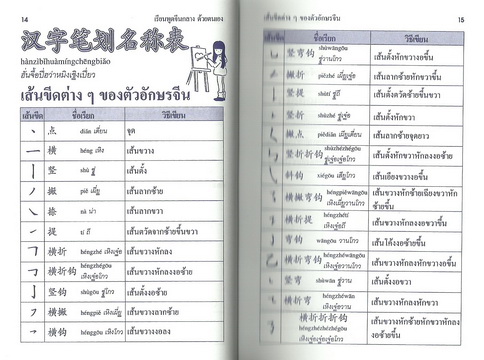 14
เรียนพูดจีนกลาง ด้วยตนเอง
汉字笔划名称表
hànzìbǐhuàmíngchēngbiǎo
ฮั่นจื้อปี่ฮว่าหมิงเชิงเปี่ยว
เส้นขีดต่าง ๆ ของตัวอักษรจีน
เส้นขีด ชื่อเรียก วิธีเขียน
丶 点 diǎn เตี่ยน จุด
一 横 héng เหิง เส้นขวาง
丨 竖 shù ซู่ เส้นตั้ง
丿 撇 piě เผี่ย เส้นลากซ้าย
捺 nà น่า เส้นลากขวา
提 tí ถี เส้นตวัดจากซ้ายขึ้นขวา
横折 héngzhé เหิงเจ๋อ เส้นขวางหักลง
横折钩 héngzhégōu เหิงเจ๋อโกว เส้นขวางหักลงงอซ้ายขึ้น
亅 竖钩 shùgōu ซู่โกว เส้นตั้งงอซ้าย
横撇 héngpiě เหิงเผี่ย เส้นขวางลากซ้าย
横钩 hénggōu เหิงโกว เส้นขวางงอลง
เส้นขีดต่าง ๆ ของตัวอักษรจีน
15
เส้นขีด ชื่อเรียก วิธีเขียน
竖弯钩 shùwāngōu ซู่วานโกว เส้นตั้งหักขวางอขึ้น
撇折 piězhé เผี่ยเจ๋อ เส้นลากซ้ายหักขวา
竖提 shùtí ซู่ถี เส้นตั้งตวัดซ้ายขึ้นขวา
竖折 shùzhé ซู่เจ๋อ เส้นตั้งหักขวา
撇点 piědiǎn เผี่ยเตี่ยน เส้นลากซ้ายจุดขวา
竖折折钩 shùzhézhégōu ซู่เจ๋อเจ๋อโกว เส้นตั้งหักขวาหักลงงอซ้ายขึ้น
斜钩 เส้นเอียงขวางอขึ้น
横撇弯钩 héngpiěwāngōu เหิงเผี่ยวานโกว เส้นขวางหักซ้ายเฉียงขวาหักซ้ายขึ้น
横折提 héngzhétí เหิงเจ๋อถี เส้นขวางหักลงงอขวาขึ้น
弯钩 wāngōu วานโกว เส้นโค้งงอซ้ายขึ้น
横折弯钩 héngzhéwāngōu เหิงเจ๋อวานโกว เส้นขวางหักลงหักขวางอขึ้น
竖弯 shùwān ซู่วาน เส้นตั้งงอขวา
横折弯 héngzhéwān เหิงเจ๋อวาน เส้นขวางหักลงหักขวา
横折折折钩 héngzhézhézhégōu เหิงเจ๋อเจ๋อเจ๋อโกว เส้นขวางหักซ้ายหักขวาหักลงงอซ้ายขึ้น